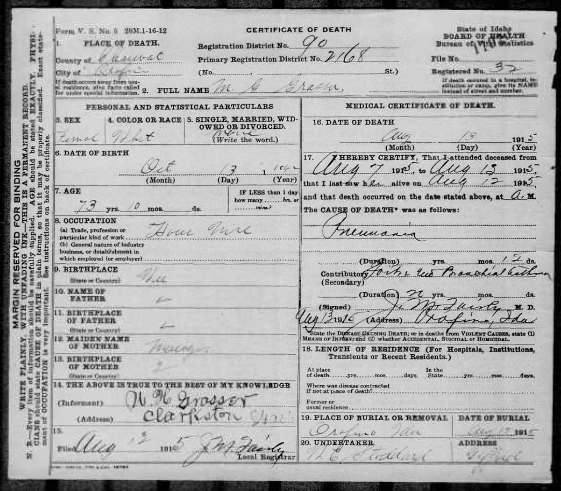 Form V. S. No. 5 20M.1-16-12
CERTIFICATE OF DEATH
State of Idaho
BOARD OF HEALTH
Bureau of Vital Statistics
1. PLACE OF DEATH.
Registration District No. 90
County of
Primary Registration District No. 2168
File No.
City of
(No. St.)
Registered No. 32
If death occurs away from usual residence, give facts called for under special information.
If death occurred in a hospital, institution or camp, give its NAME instead of street and number.
2. FULL NAME M. G. Grosser
PERSONAL AND STATISTICAL PARTICULARS
3. SEX
4. COLOR OR RACE
5. SINGLE, MARRIED, WIDOWED OR DIVORCED.
(Write the word.)
Femal
6. DATE OF BIRTH
Oct 13
(Month) (Day) (Year)
7. AGE
73 yrs. 10 mos. ds.
IF LESS than 1 day how many hrs. or min.?
8. OCCUPATION
(a) Trade, profession or particular kind of work
(b) General nature of industry business, or establishment in which employed (or employer)
9. BIRTHPLACE
(State or Country)
10. NAME OF FATHER
11. BIRTHPLACE OF FATHER
(State or Country)
12. MAIDEN NAME OF MOTHER
13. BIRTHPLACE OF MOTHER
(State or Country)
14. THE ABOVE IS TRUE TO THE BEST OF MY KNOWLEDGE
(Informant) Grosser
(Address) Clarkston
15.
Filed Aug 12 1915 J M Fairly
Local Registrar
MEDICAL CERTIFICATE OF DEATH
16. DATE OF DEATH
Aug 13 1915
(Month) (Day) (Year)
17. I HEREBY CERTIFY, That I attended deceased from
Aug 7 1915, to Aug 13 1915,
that I last saw her alive on Aug 12 1915,
and that death occurred on the date stated above, at A. M.
The CAUSE OF DEATH* was as follows:
Pneumonia
(Duration) yrs. mos. 12 ds.
Contributory Bronchial Asthma
(Secondary)
(Duration) yrs. mos. ds.
(Signed) J. M. Fairly M. D.
(Address) Orofino, Ida
*State the DISEASE CAUSING DEATH; or in deaths from VIOLENT CAUSES, state (1) MEANS OF INJURY; and (2) whether ACCIDENTAL, SUICIDAL or HOMICIDAL.
18. LENGTH OF RESIDENCE (For Hospitals, Institutions, Transients or Recent Residents.)
At place of death yrs. mos. days. In the State yrs. mos. days
Where was disease contracted if not at place of death?
Former or usual residence
19. PLACE OF BURIAL OR REMOVAL
DATE OF BURIAL
Orofino Ida
1915
20. UNDERTAKER
ADDRESS
Stoddard
MARGIN RESERVED FOR BINDING
WRITE PLAINLY, WITH UNFADING INK—THIS IS A PERMANENT RECORD.
N. B.—Every item of information should be carefully supplied. AGE should be stated EXACTLY. PHYSICIANS should state CAUSE OF DEATH in plain terms, so that it may be properly classified. Exact statement of OCCUPATION is very important. See instructions on back of certificate.